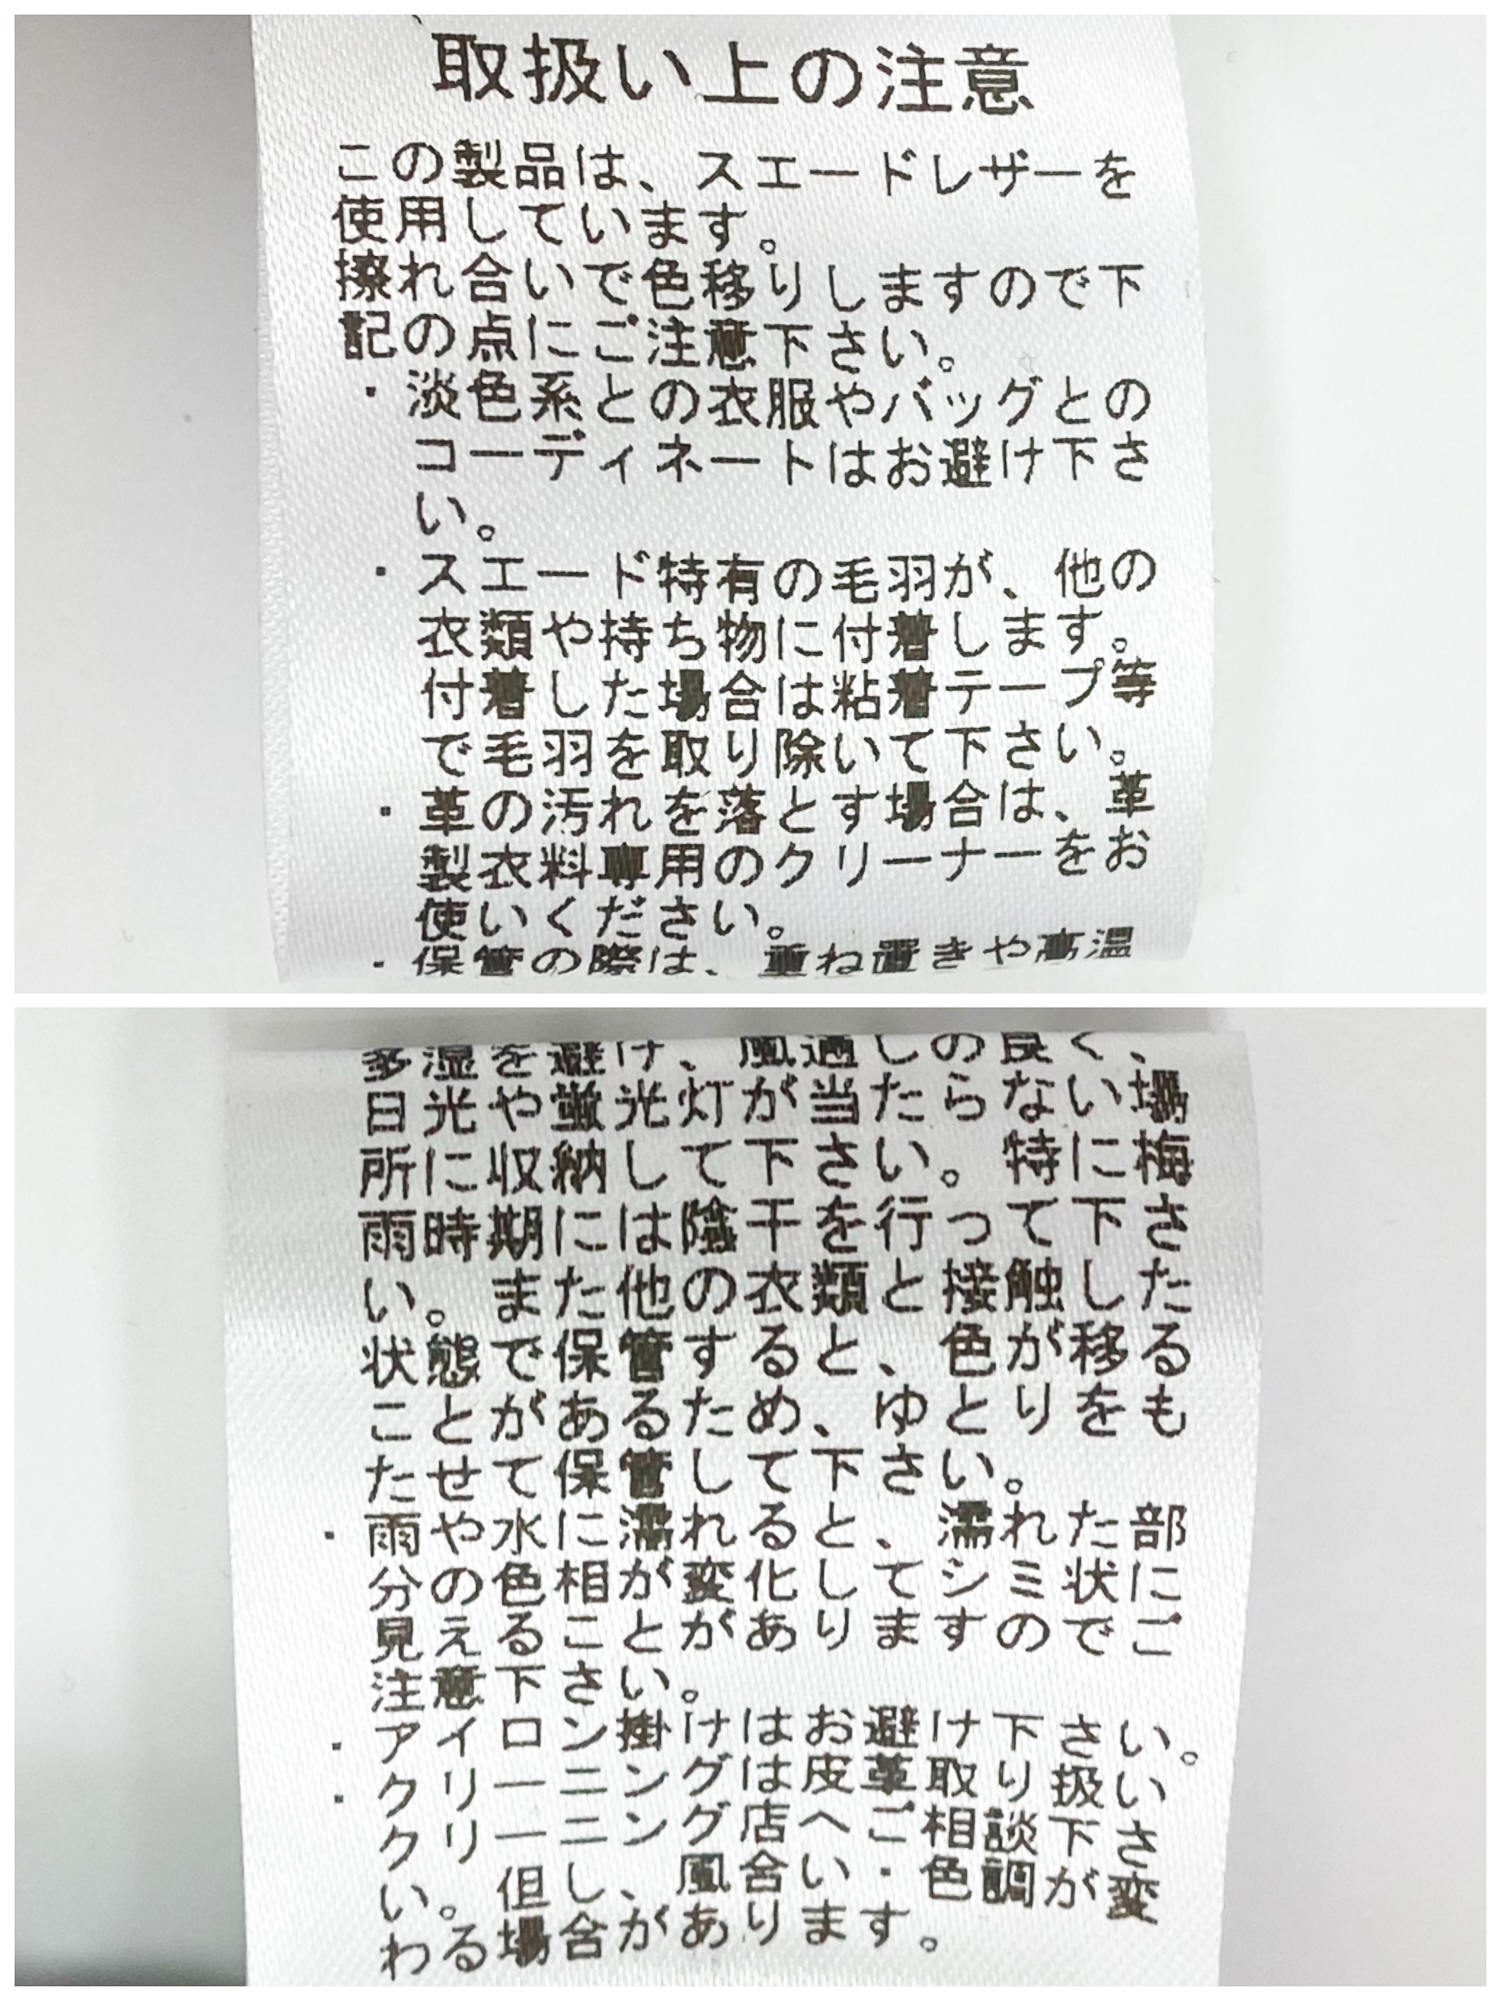 取扱い上の注意
この製品は、スエードレザーを
使用しています。
擦れ合いで色移りしますので下
記の点にご注意下さい。
・淡色系との衣服やバッグとの
コーディネートはお避け下さ
い。
・スエード特有の毛羽が、他の
衣類や持ち物に付着します。
付着した場合は粘着テープ等
で毛羽を取り除いて下さい。
・革の汚れを落とす場合は、革
製衣料専用のクリーナーをお
使いください。
・保管の際は、重ね置きや高温
多湿を避け、風通しの良く、
日光や蛍光灯が当たらない場
所に収納して下さい。特に梅
雨時期には陰干を行って下さ
い。また他の衣類と接触した
状態で保管すると、色が移る
ことがあるため、ゆとりをも
たせて保管して下さい。
・雨や水に濡れると、濡れた部
分の色相が変化してシミ状に
見えることがありますのでご
注意下さい。
・アイロン掛けはお避け下さい。
・クリーニングは皮革取り扱い
クリーニング店へご相談下さ
い。但し、風合い・色調が変
わる場合があります。